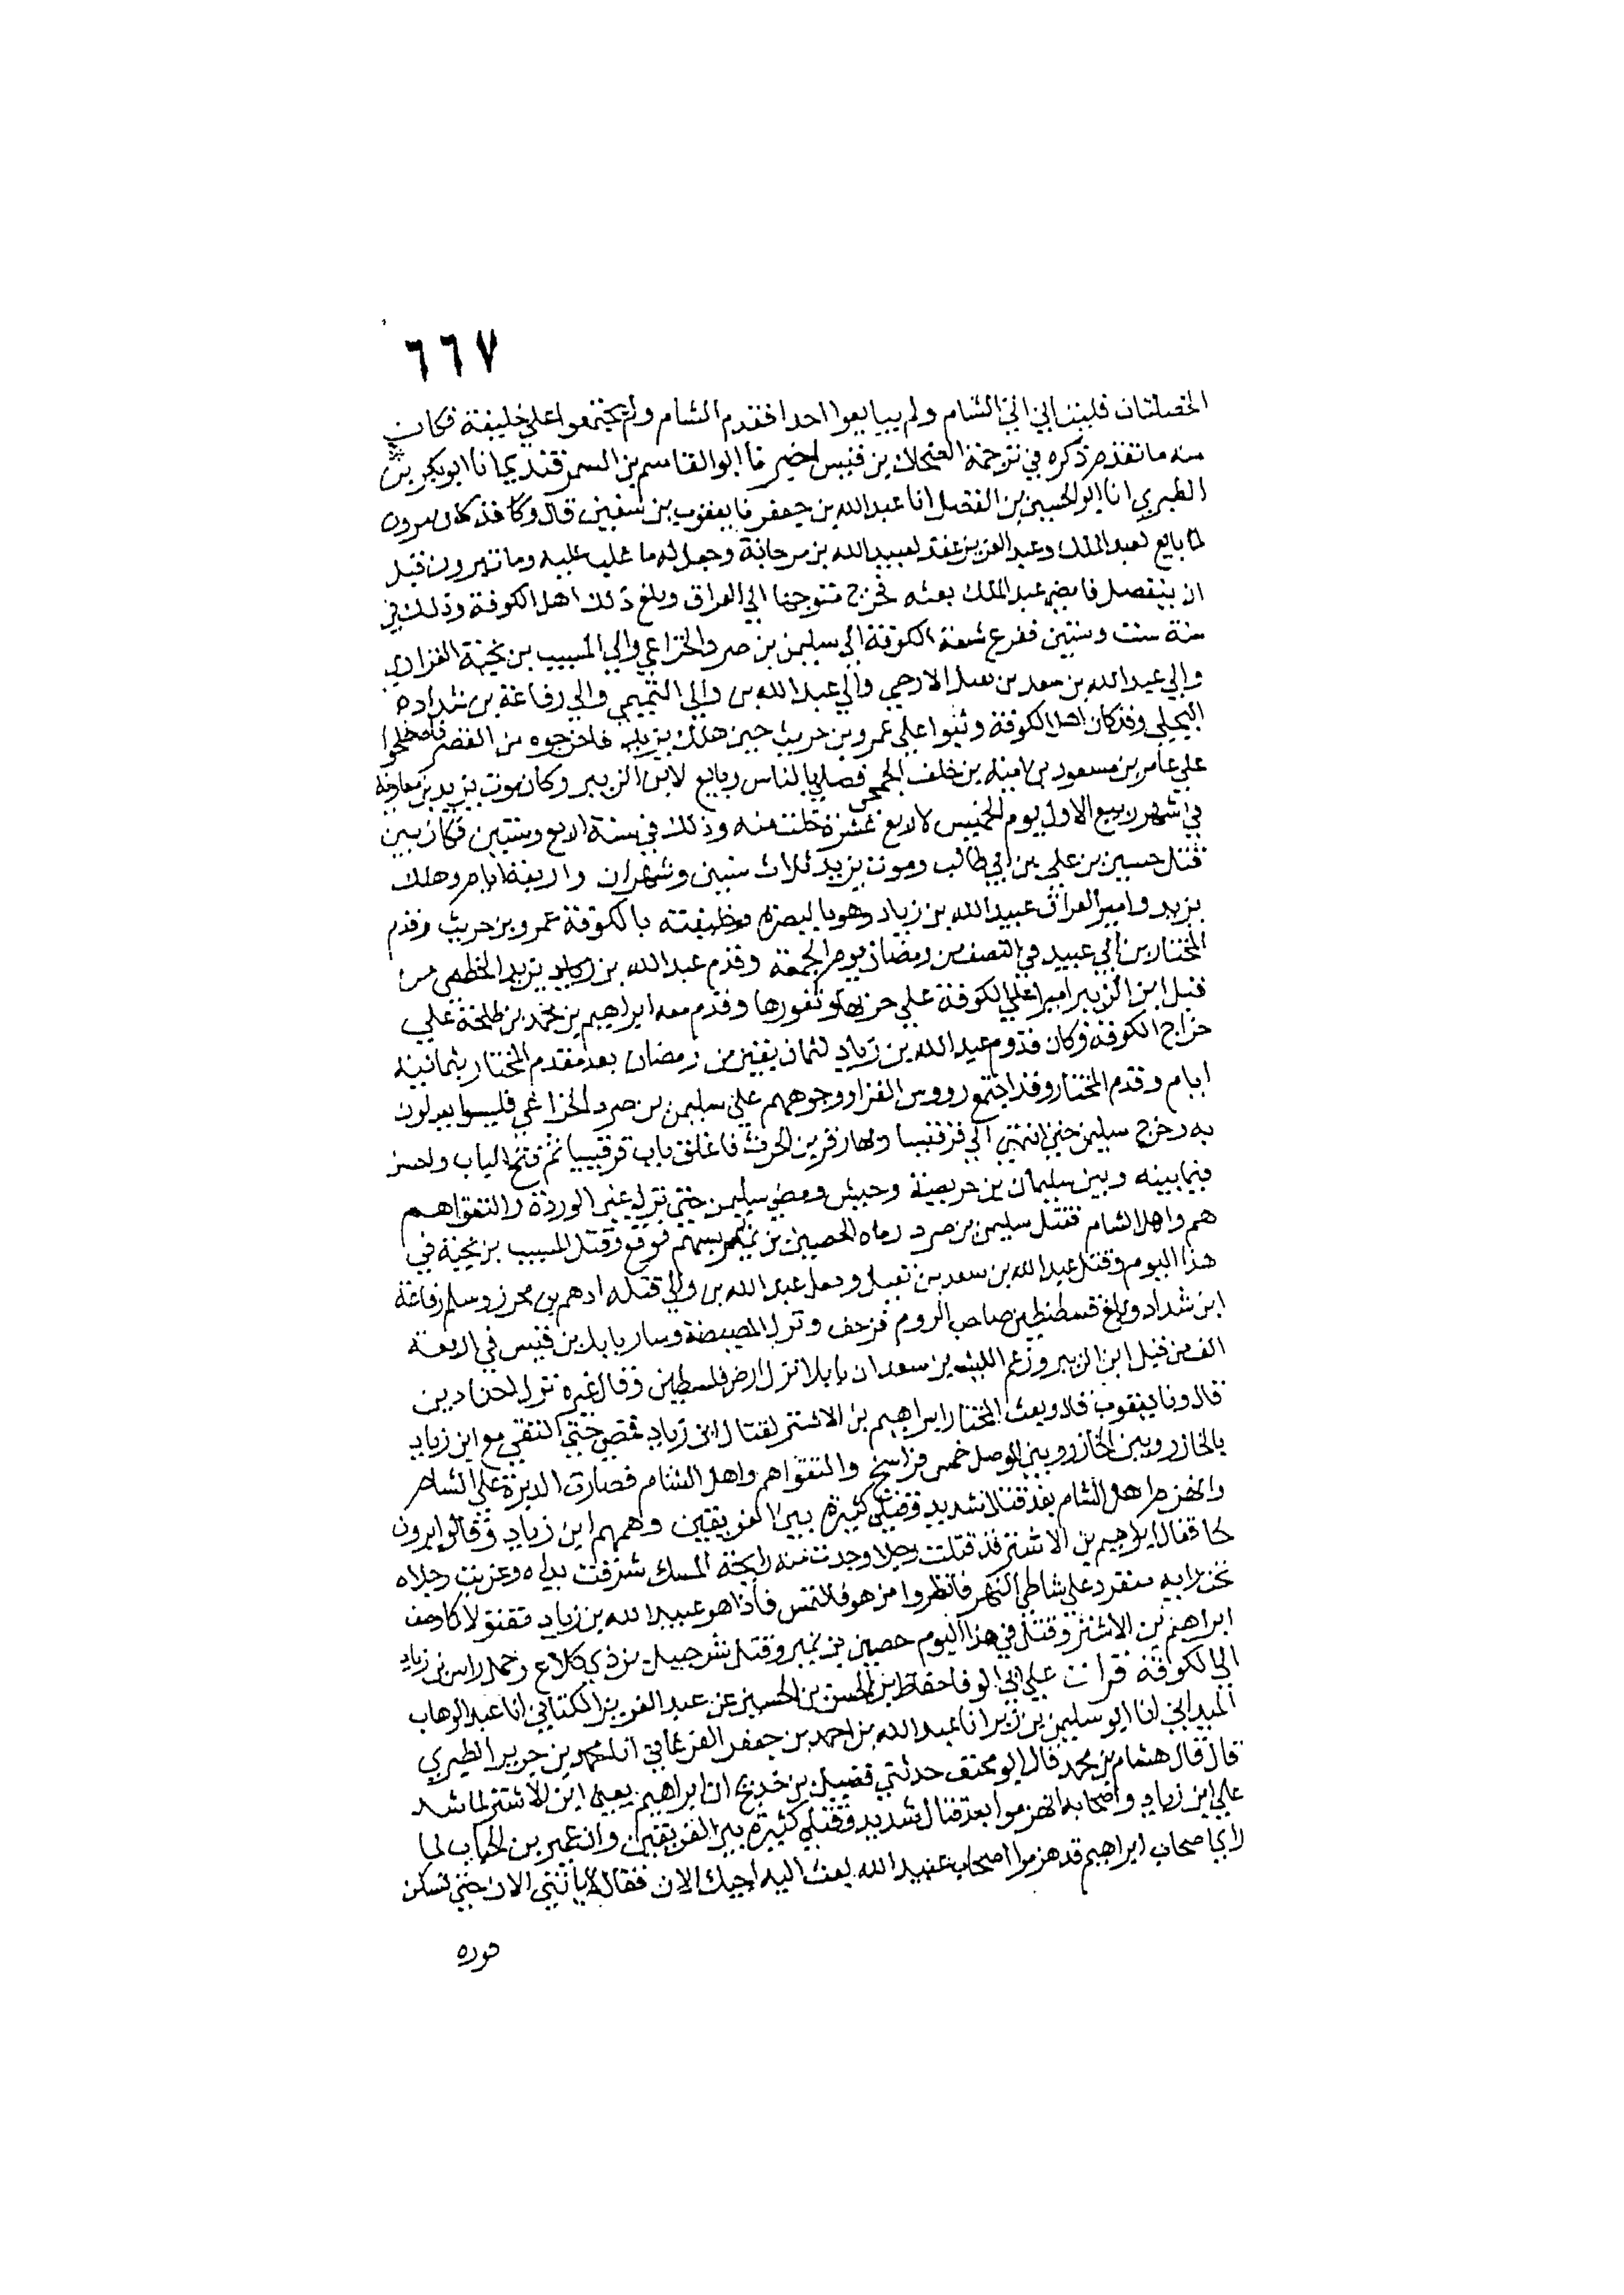 ٦٦٧
الخصلتان فليتنا الى الشام ولم يبايعوا احدا فقدم الشام ولم يجتمعوا على خليفة فكان
منه ما تقدم ذكره في ترجمة الضحاك بن قيس اخبرنا ابو القاسم بن السمرقندي انا ابو بكر بن
الطبري انا ابو الحسين بن الفضل انا عبد الله بن جعفر نا يعقوب بن سفين قال وكان مرون
لما بايع لعبد الملك وعبد العزيز عقد لعبيد الله بن مرجانة وجعل له ما غلب عليه ومات مرون قبل
ان ينفصل فامضى عبد الملك بعثه فخرج متوجها الى العراق وبلغ ذلك اهل الكوفة وذلك في
سنة ست وستين ففزع شيعة الكوفة الى سليمن بن صرد الخزاعي والى المسيب بن نجبة الفزاري
والى عبد الله بن سعد بن الازدي والى عبد الله بن والي التميمي والى رفاعة بن شداد
البجلي وقد كان اهل الكوفة وثبوا على عمرو بن حريث حين هلك يزيد فاخرجوه من القصر فاصطلحوا
على عامر بن مسعود بن امية بن خلف الجمحي فصلى بالناس وبايع لابن الزبير وكان موت يزيد بن معاوية
في شهر ربيع الاول يوم الخميس لاربع عشرة خلت منه وذلك في سنة اربع وستين فكان بين
قتل حسين بن علي بن ابي طالب وموت يزيد ثلاث سنين وشهران واربعة ايام وهلك
يزيد وامير العراق عبيد الله بن زياد وهو بالبصرة وخليفته بالكوفة عمرو بن حريث وقدم
المختار بن ابي عبيد في النصف من رمضان يوم الجمعة وقدم عبد الله بن يزيد الخطمي من
قبل ابن الزبير اميرا على الكوفة على حربها وثغورها وقدم معه ابراهيم بن محمد بن طلحة على
خراج الكوفة وكان قدوم عبد الله بن زياد لثمان بقين من رمضان بعد مقدم المختار بثمانية
ايام وقدم المختار وقد اجتمع رووس القرا ووجوههم على سليمن بن صرد الخزاعي فليسوا يعدلون
به وخرج سليمن حتى انتهى الى قرقيسيا وبها زفر بن الحرث فاغلق باب قرقيسيا ثم فتح الباب
فيما بينه وبين سليمان ومضى سليمن حتى نزل عين الوردة والتقوا هم
هم واهل الشام فقتل سليمن بن صرد رماه الحصين بن نمير بسهم فوقع وقتل المسيب بن نجبة في
هذا اليوم وقتل عبد الله بن سعد بن نفيل وعبد الله بن والي قتله ادهم بن محرز وسلم رفاعة
ابن شداد وبلغ قسطنطين صاحب الروم فزحف ونزل المصيصة وسار بابل بن قيس في اربعة
الف من قبل ابن الزبير وزعم الليث بن سعد ان بابلا نزل ارض فلسطين وقال غيره نزل اجنادين
قال ونا يعقوب قال وبعث المختار ابراهيم بن الاشتر لقتال ابن زياد فمضى حتى التقى مع ابن زياد
بالخازر وبين الخازر وبين الموصل خمس فراسخ والتقوا هم واهل الشام فصارت الدبرة على الشام
وانهزم اهل الشام بعد قتال شديد وقتلى كثيرة بين الفريقين وهمهم ابن زياد وقالوا يرون
كا فقال ابراهيم بن الاشتر قد قتلت رجلا وجدت منه رايحة المسك شرقت يداه وغربت رجلاه
تحت راية منفرد على شاطي النهر فانظروا من هو فالتمس فاذا هو عبيد الله بن زياد مقتولا كما وصف
ابراهيم بن الاشتر وقتل في هذا اليوم حصين بن نمير وقتل شرحبيل بن ذي كلاع وحمل راس ابن زياد
الى الكوفة قرات على ابي الوفا حفاظ بن الحسن بن الحسين عن عبد العزيز الكتاني انا عبد الوهاب
الميداني انا ابو سليمن بن زبر انا عبد الله بن احمد بن جعفر الفرغاني انا محمد بن جرير الطبري
قال قال هشام بن محمد قال ابو مخنف حدثني فضيل بن خديج ان ابراهيم يعني ابن الاشتر لما شد
على ابن زياد واصحابه انهزموا بعد قتال شديد وقتلى كثيرة بين الفريقين وان عمير بن الحباب لما
راى اصحاب ابراهيم قد هزموا اصحاب عبيد الله بعث اليه اجيك الان فقال لا تاتني الان حتى تسكن
فوره